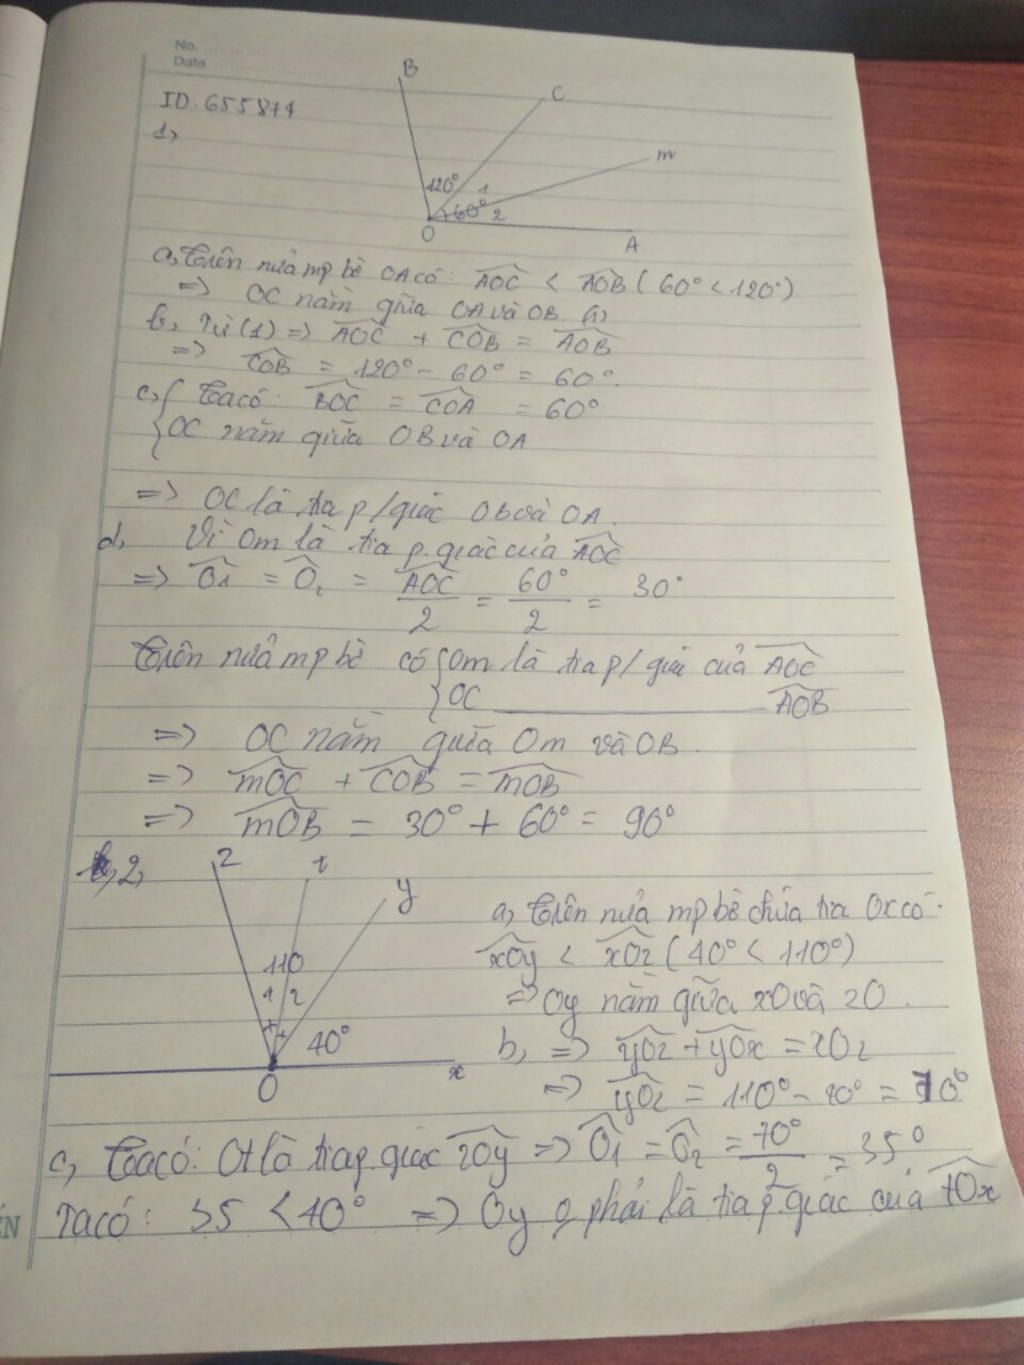 No.
Date
ID: 655874
1,
B
C
m
120° 1
60° 2
O
A
a, Trên nửa mp bờ OA có: AOC < AOB (60° < 120°)
=> OC nằm giữa OA và OB. (1)
b, Từ (1) => AOC + COB = AOB
=> COB = 120° - 60° = 60°.
c, { Ta có: BOC = COA = 60°
{ OC nằm giữa OB và OA
=> OC là tia p/giác OB và OA.
d, Vì Om là tia p.giác của AOC
=> O1 = O2 = AOC/2 = 60°/2 = 30°
Trên nửa mp bờ có { Om là tia p/giác của AOC
{ OC ________ AOB
=> OC nằm giữa Om và OB.
=> mOC + COB = mOB
=> mOB = 30° + 60° = 90°
2,
z t y
110
1 2
40°
O
x
a, Trên nửa mp bờ chứa tia Ox có.
xOy < xOz (40° < 110°)
=> Oy nằm giữa xO và zO.
b, => yOz + yOx = xOz
=> yOz = 110° - 40° = 70°
c, Ta có: Ot là tia p.giác zOy => O1 = O2 = 70°/2 = 35°
Ta có: 35 < 40° => Oy o phải là tia p.giác của tOx
ÊN